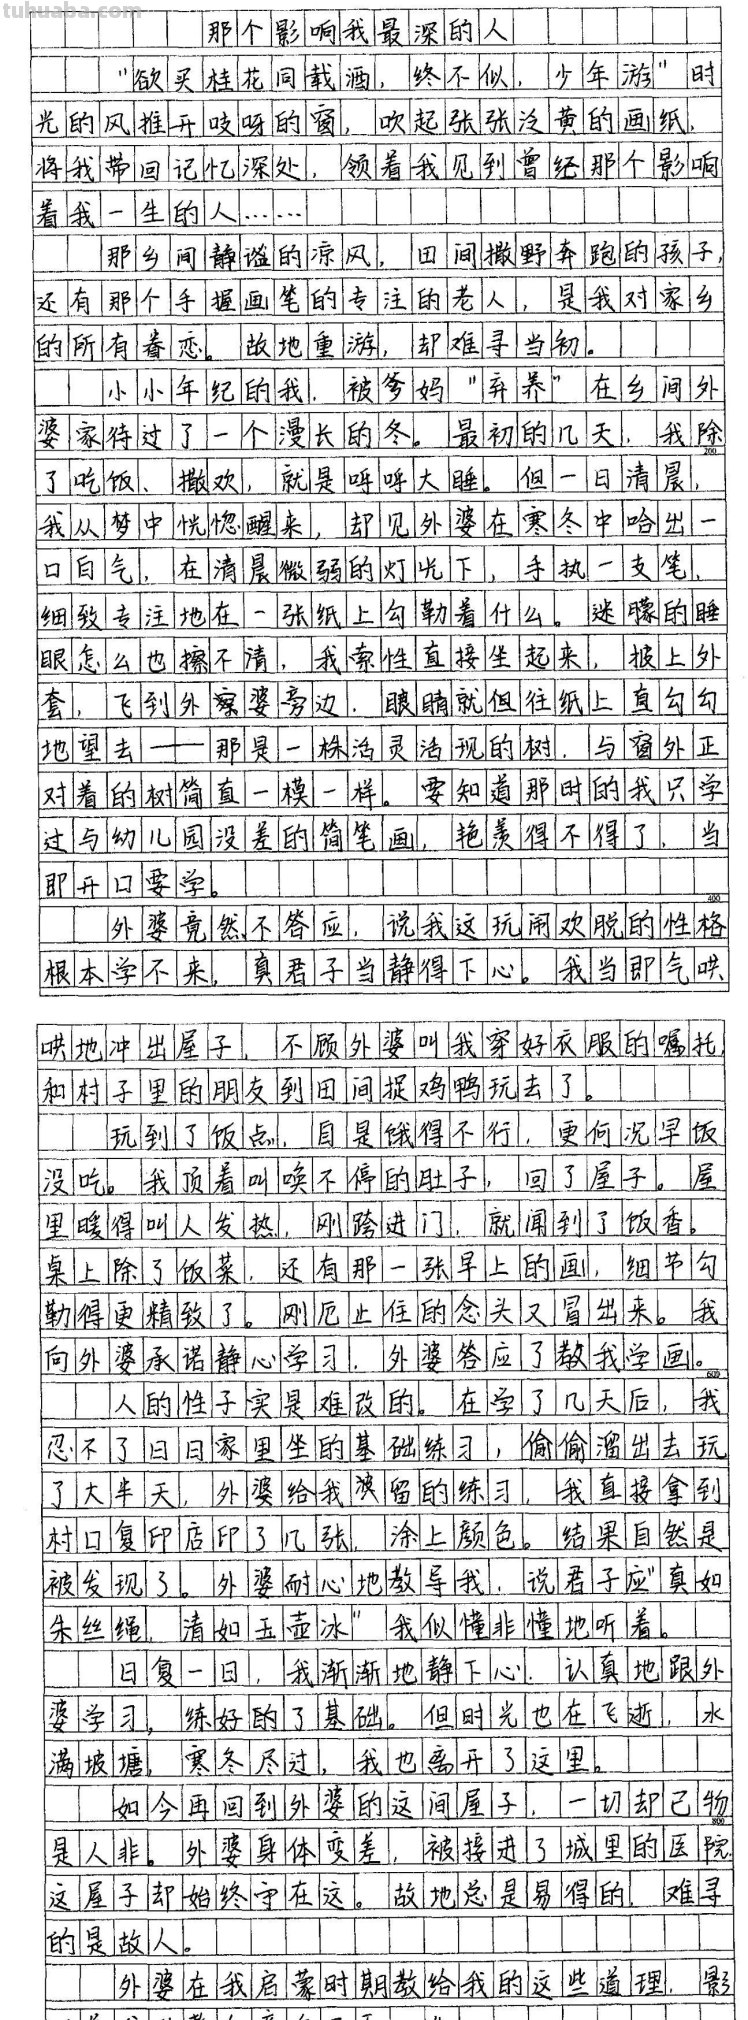 tuhuaba.com
那个影响我最深的人
"欲买桂花同载酒，终不似，少年游"时
光的风推开吱呀的窗，吹起张张泛黄的画纸，
将我带回记忆深处，领着我见到曾经那个影响
着我一生的人……
那乡间静谧的凉风，田间撒野奔跑的孩子，
还有那个手握画笔的专注的老人，是我对家乡
的所有眷恋。故地重游，却难寻当初。
小小年纪的我，被爹妈"弃养"在乡间外
婆家待过了一个漫长的冬。最初的几天，我除
200
了吃饭、撒欢，就是呼呼大睡。但一日清晨，
我从梦中恍惚醒来，却见外婆在寒冬中哈出一
口白气，在清晨微弱的灯光下，手执一支笔，
细致专注地在一张纸上勾勒着什么。迷朦的睡
眼怎么也擦不清，我索性直接坐起来，披上外
套，飞到外婆旁边，眼睛就但往纸上直勾勾
地望去——那是一株活灵活现的树，与窗外正
对着的树简直一模一样。要知道那时的我只学
过与幼儿园没差的简笔画，艳羡得不得了，当
即开口要学。
400
外婆竟然不答应，说我这玩闹欢脱的性格
根本学不来，真君子当静得下心。我当即气哄
哄地冲出屋子，不顾外婆叫我穿好衣服的嘱托，
和村子里的朋友到田间捉鸡鸭玩去了。
玩到了饭点，自是饿得不行，更何况早饭
没吃。我顶着叫唤不停的肚子，回了屋子。屋
里暖得叫人发热，刚跨进门，就闻到了饭香。
桌上除了饭菜，还有那一张早上的画，细节勾
勒得更精致了。刚厄止住的念头又冒出来。我
向外婆承诺静心学习，外婆答应了教我学画。
600
人的性子实是难改的。在学了几天后，我
忍不了日日家里坐的基础练习，偷偷溜出去玩
了大半天，外婆给我留的练习，我直接拿到
村口复印店印了几张，涂上颜色。结果自然是
被发现了。外婆耐心地教导我，说君子应"真如
朱丝绳，清如玉壶冰"我似懂非懂地听着。
日复一日，我渐渐地静下心，认真地跟外
婆学习，练好的了基础。但时光也在飞逝，水
满坡塘，寒冬尽过，我也离开了这里。
如今再回到外婆的这间屋子，一切却已物
800
是人非。外婆身体变差，被接进了城里的医院，
这屋子却始终守在这。故地总是易得的，难寻
的是故人。
外婆在我启蒙时期教给我的这些道理，影